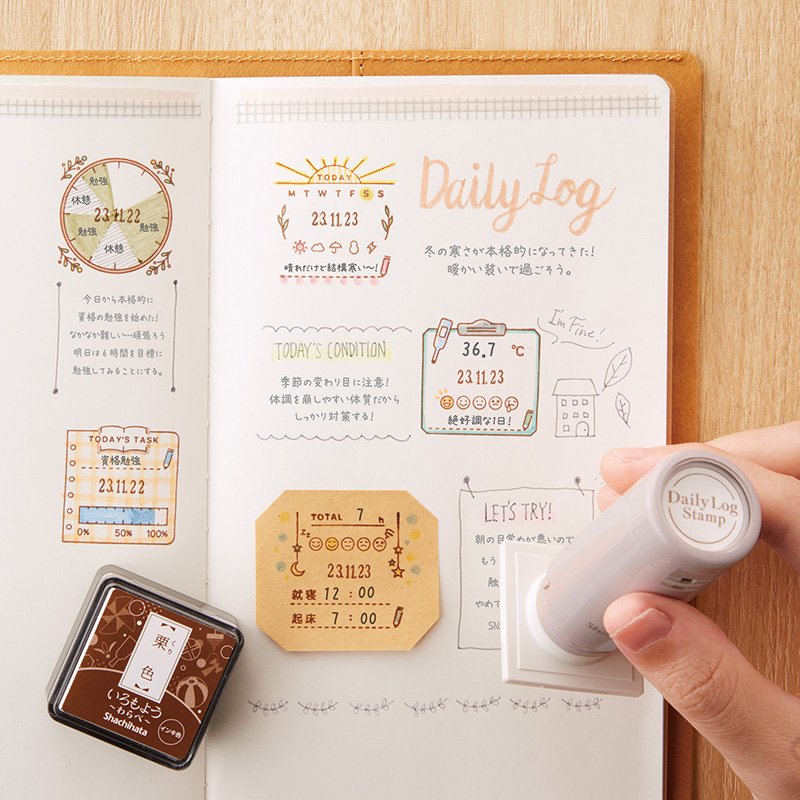 勉強
休憩
23.11.22
勉強
勉強
休憩
今日から本格的に
資格の勉強を始めた!
なかなか難しい…頑張ろう
明日は6時間を目標に
勉強してみることにする。
TODAY'S TASK
資格勉強
23.11.22
0% 50% 100%
TODAY
M T W T F S S
23.11.23
晴れだけど結構寒い〜!
Daily Log
冬の寒さが本格的になってきた!
暖かい装いで過ごそう。
TODAY'S CONDITION
季節の変わり目に注意!
体調を崩しやすい体質だから
しっかり対策する!
36.7 ℃
23.11.23
絶好調な1日!
I'm Fine!
TOTAL 7 h
zz
23.11.23
就寝 12:00
起床 7:00
LET'S TRY!
朝の目覚めが悪いので
もう
触
やめて
SN
Daily Log
Stamp
Sha
くり
【栗色】
いろもよう
〜わらべ〜
Shachihata
インキ色